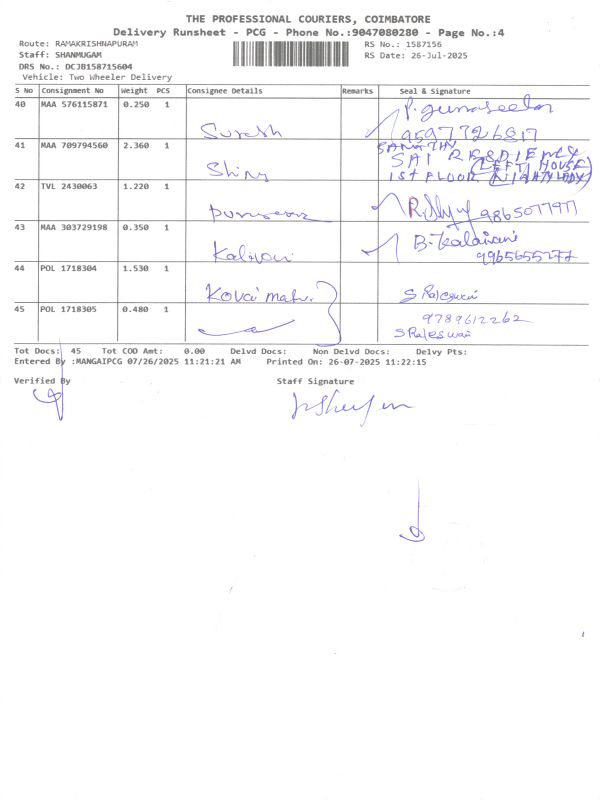 THE PROFESSIONAL COURIERS, COIMBATORE
Delivery Runsheet - PCG - Phone No.:9047080280 - Page No.:4
Route: RAMAKRISHNAPURAM
RS No.: 1587156
Staff: SHANMUGAM
RS Date: 26-Jul-2025
DRS No.: DCJB158715604
Vehicle: Two Wheeler Delivery
S No Consignment No Weight PCS Consignee Details Remarks Seal & Signature
40 MAA 576115871 0.250 1
Suresh
P. Gunaseelan
9597726817
41 MAA 709794560 2.360 1
Shiny
SAI
1st FLOOR
LEFT HOUSE
42 TVL 2430063 1.220 1
9865077977
43 MAA 303729198 0.350 1
Kalivani
B. Kalaivani
9965655272
44 POL 1718304 1.530 1
Kovai mah.
S Rajeswari
45 POL 1718305 0.480 1
9789612262
S Rajeswari
Tot Docs: 45 Tot COD Amt: 0.00 Delvd Docs: Non Delvd Docs: Delvy Pts:
Entered By :MANGAIPCG 07/26/2025 11:21:21 AM Printed On: 26-07-2025 11:22:15
Verified By Staff Signature